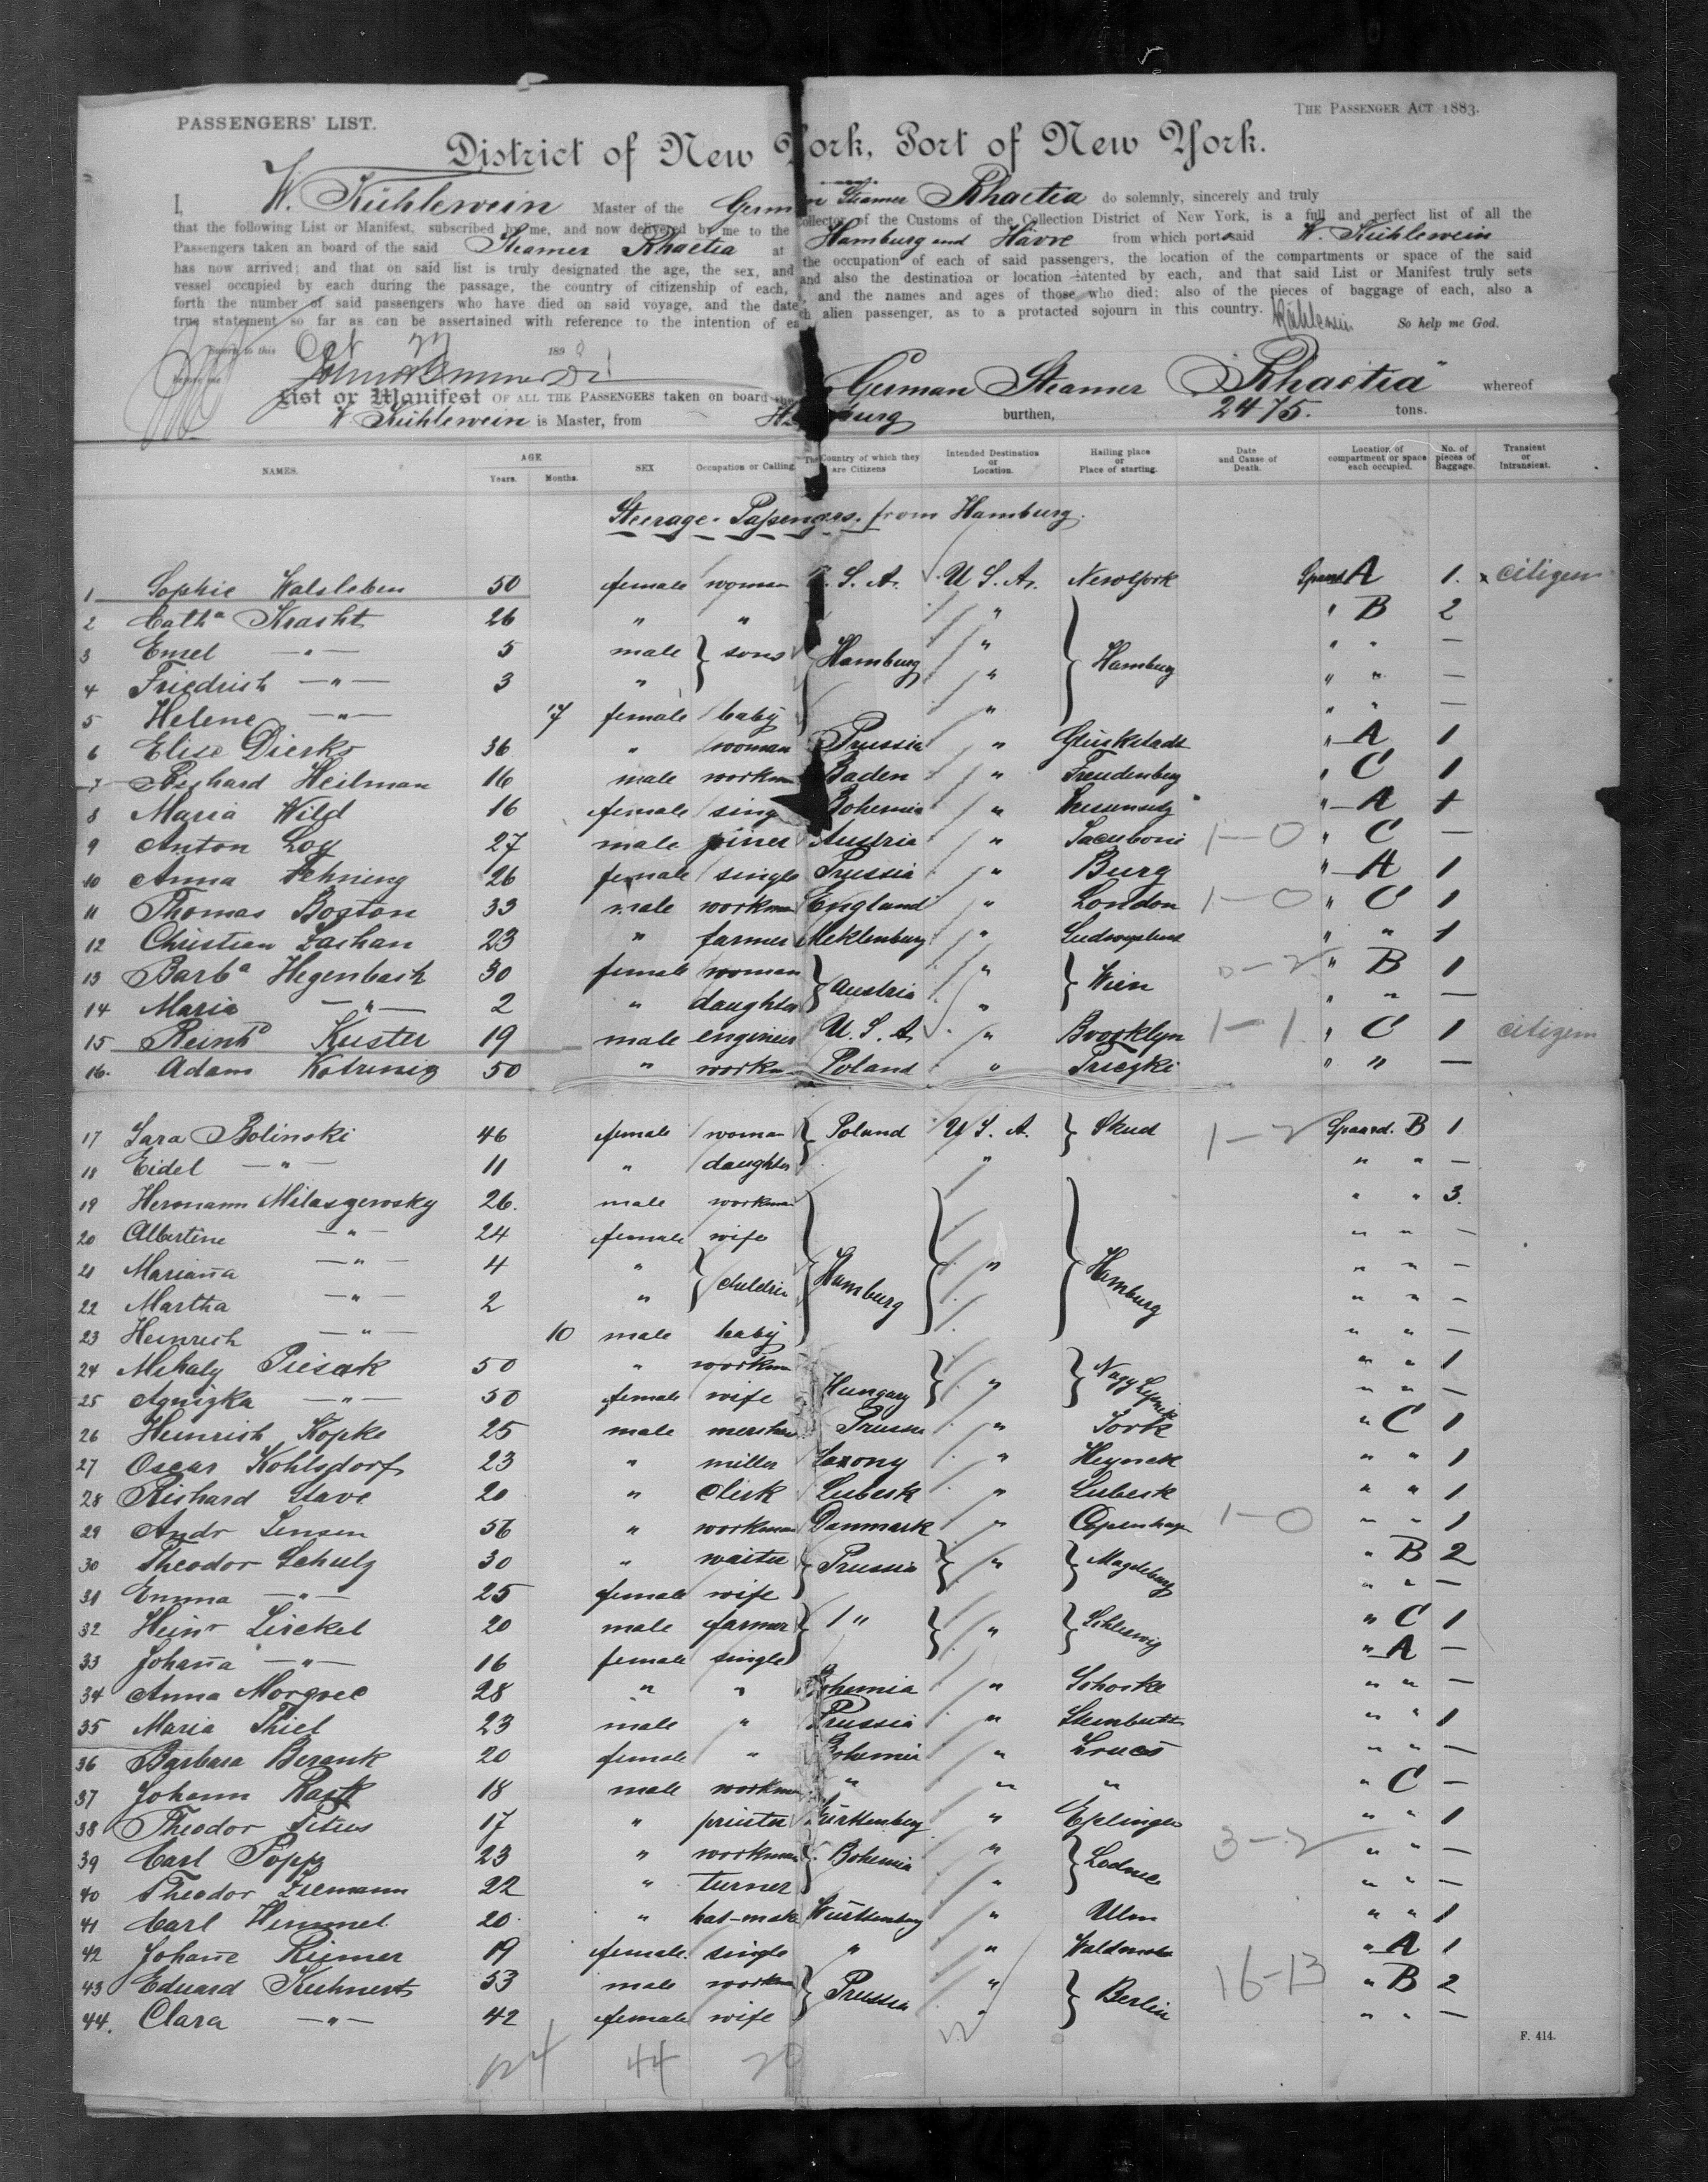 PASSENGERS' LIST.
THE PASSENGER ACT 1883.
District of New York, Port of New York.
I, W. Kühlewein Master of the German Steamer Rhaetia do solemnly, sincerely and truly
that the following List or Manifest, subscribed by me, and now delivered by me to the Collector of the Customs of the Collection District of New York, is a full and perfect list of all the
Passengers taken an board of the said Steamer Rhaetia at Hamburg and Hâvre from which port said W. Kühlewein
has now arrived; and that on said list is truly designated the age, the sex, and the occupation of each of said passengers, the location of the compartments or space of the said
vessel occupied by each during the passage, the country of citizenship of each, and also the destination or location intented by each, and that said List or Manifest truly sets
forth the number of said passengers who have died on said voyage, and the date, and the names and ages of those who died; also of the pieces of baggage of each, also a
true statement so far as can be assertained with reference to the intention of each alien passenger, as to a protacted sojourn in this country. Kühlewein So help me God.
Sworn to this Oct 189
List or Manifest OF ALL THE PASSENGERS taken on board the German Steamer "Rhaetia" whereof
W. Kühlewein is Master, from Hamburg burthen, 2475. tons.
NAMES. AGE Years. Months. SEX Occupation or Calling. The Country of which they are Citizens Intended Destination or Location. Hailing place or Place of starting. Date and Cause of Death. Location of compartment or space each occupied. No. of pieces of Baggage. Transient or Intransient.
Steerage-Passengers from Hamburg.
1 Sophie Walsleben 50 female woman U. S. A. U S. A. New York Spaard A 1. x citizen
2 Cath a Krasht 26 " " " " B 2
3 Emel —"— 5 male } sons Hamburg " Hamburg " " —
4 Friedrich —"— 3 " " " " —
5 Helene —"— 7 female baby " " " —
6 Elise Dierks 36 " woman Prussia " Glückstadt " A 1
7 Richard Heilman 16 male workman Baden " Freudenberg " C 1
8 Maria Wild 16 female sing Bohemia " " A 1
9 Anton Loy 27 male joiner Austria " Jacuboni 1—0 " C —
10 Anna Fehning 26 female single Prussia " Burg " A 1
11 Thomas Boston 33 male workman England " London 1—0 " C 1
12 Christian Zachan 23 " farmer Meklenburg " " " 1
13 Barb a Hegenbach 30 female woman } Austria " } Wien 0—2 " B 1
14 Maria —"— 2 " daughter " " " —
15 Reinh d Kuster 19 male engineer U. S. A. " Brooklyn 1—1 " C 1 citizen
16. Adam 50 " workman Poland " " " —
17 Sara Bolinski 46 female woman } Poland U S. A. } Skud 1—2 Spaard. B 1
18 Eidel —"— 11 " daughter " " " —
19 Hermann Milaszewsky 26. male workman " " 3.
20 Albertine —"— 24 female wife " " —
21 Marianna —"— 4 " } children Hamburg " Hamburg " " —
22 Martha —"— 2 " " " —
23 Heinrich —"— 10 male baby " " —
24 Mihaly Piesak 50 " workman " " 1
25 Agnizka —"— 50 female wife Hungary " " " —
26 Heinrich Kopke 25 male merchant Prussia " Jork " C 1
27 Oscar Kohlsdorf 23 " miller Saxony " " " 1
28 Richard Stave 20 " clerk Lubeck " Lubeck " " 1
29 Andr Jensen 56 " workman Danmark " Copenhagn 1—0 " " 1
30 Theodor Schulz 30 " waiter } Prussia } " } Magdeburg " B 2
31 Emma —"— 25 female wife " " —
32 Hein r Lirckel 20 male farmer } " } " } Schleswig " C 1
33 Johanna —"— 16 female single " A —
34 Anna 28 " " Bohemia " " " —
35 Maria Thiel 23 male " Prussia " " " 1
36 Barbara Berank 20 female " Bohemia " " " —
37 Johann 18 male workman " " " " C —
38 Theodor Titus 17 " Württemberg " " " 1
39 Carl Popp 23 " workman } Bohemia " } 3—2 " " —
40 Theodor 22 " turner " " " —
41 Carl Himmel 20. " hat-maker Württemberg " Ulm " " 1
42 Johanne Riemer 19 female single " " " A 1
43 Eduard Kuhnert 53 male workman } Prussia " } Berlin 16—13 " B 2
44. Clara —"— 42 female wife " " " —
F. 414.
44